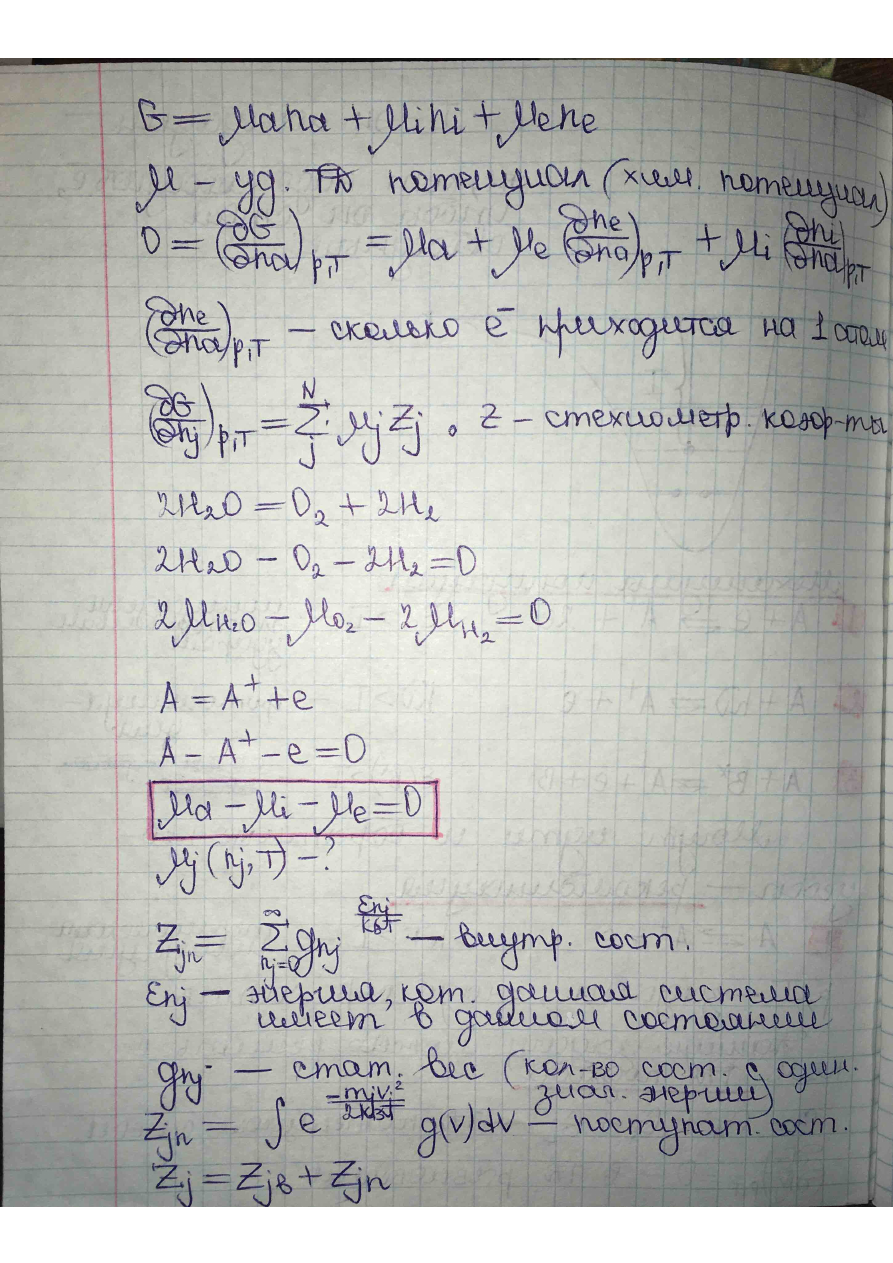 G = μana + μini + μene
μ – уд. ТД потенциал (хим. потенциал)
0 = (∂G/∂na)p,T = μa + μe (∂ne/∂na)p,T + μi (∂ni/∂na)p,T
(∂ne/∂na)p,T – сколько e⁻ приходится на 1 атом
(∂G/∂nj)p,T = Σ_j^N μjZj . Z – стехиометр. коэф-ты
2H₂O = O₂ + 2H₂
2H₂O – O₂ – 2H₂ = 0
2μH₂O – μO₂ – 2μH₂ = 0
A = A⁺ + e
A – A⁺ – e = 0
μa – μi – μe = 0
μj (nj,T) – ?
Zjn = Σ_{nj=0}^∞ gnj^{εnj/kBT} – внутр. сост.
εnj – энергия, кот. данная система
имеет в данном состоянии
gnj – стат. вес (кол-во сост. с один.
знач. энергии)
Zjn = ∫ e^{–mjvj²/2kBT} g(v)dv – поступат. сост.
Zj = Zjв + Zjп